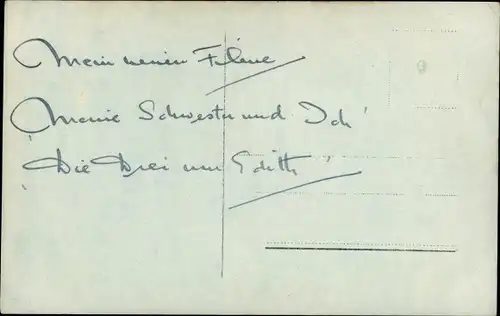 Mein neuen Filme
"Meine Schwester und Ich"
"Die Drei um Edith